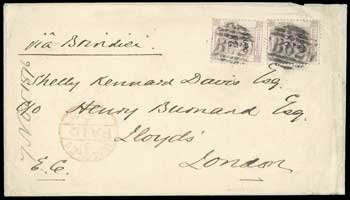 via Brindisi.
B62 B62
Shelly Kennard Davis Esq.
c/o Henry Burnard Esq.
Lloyds'
PAID
E.C. London